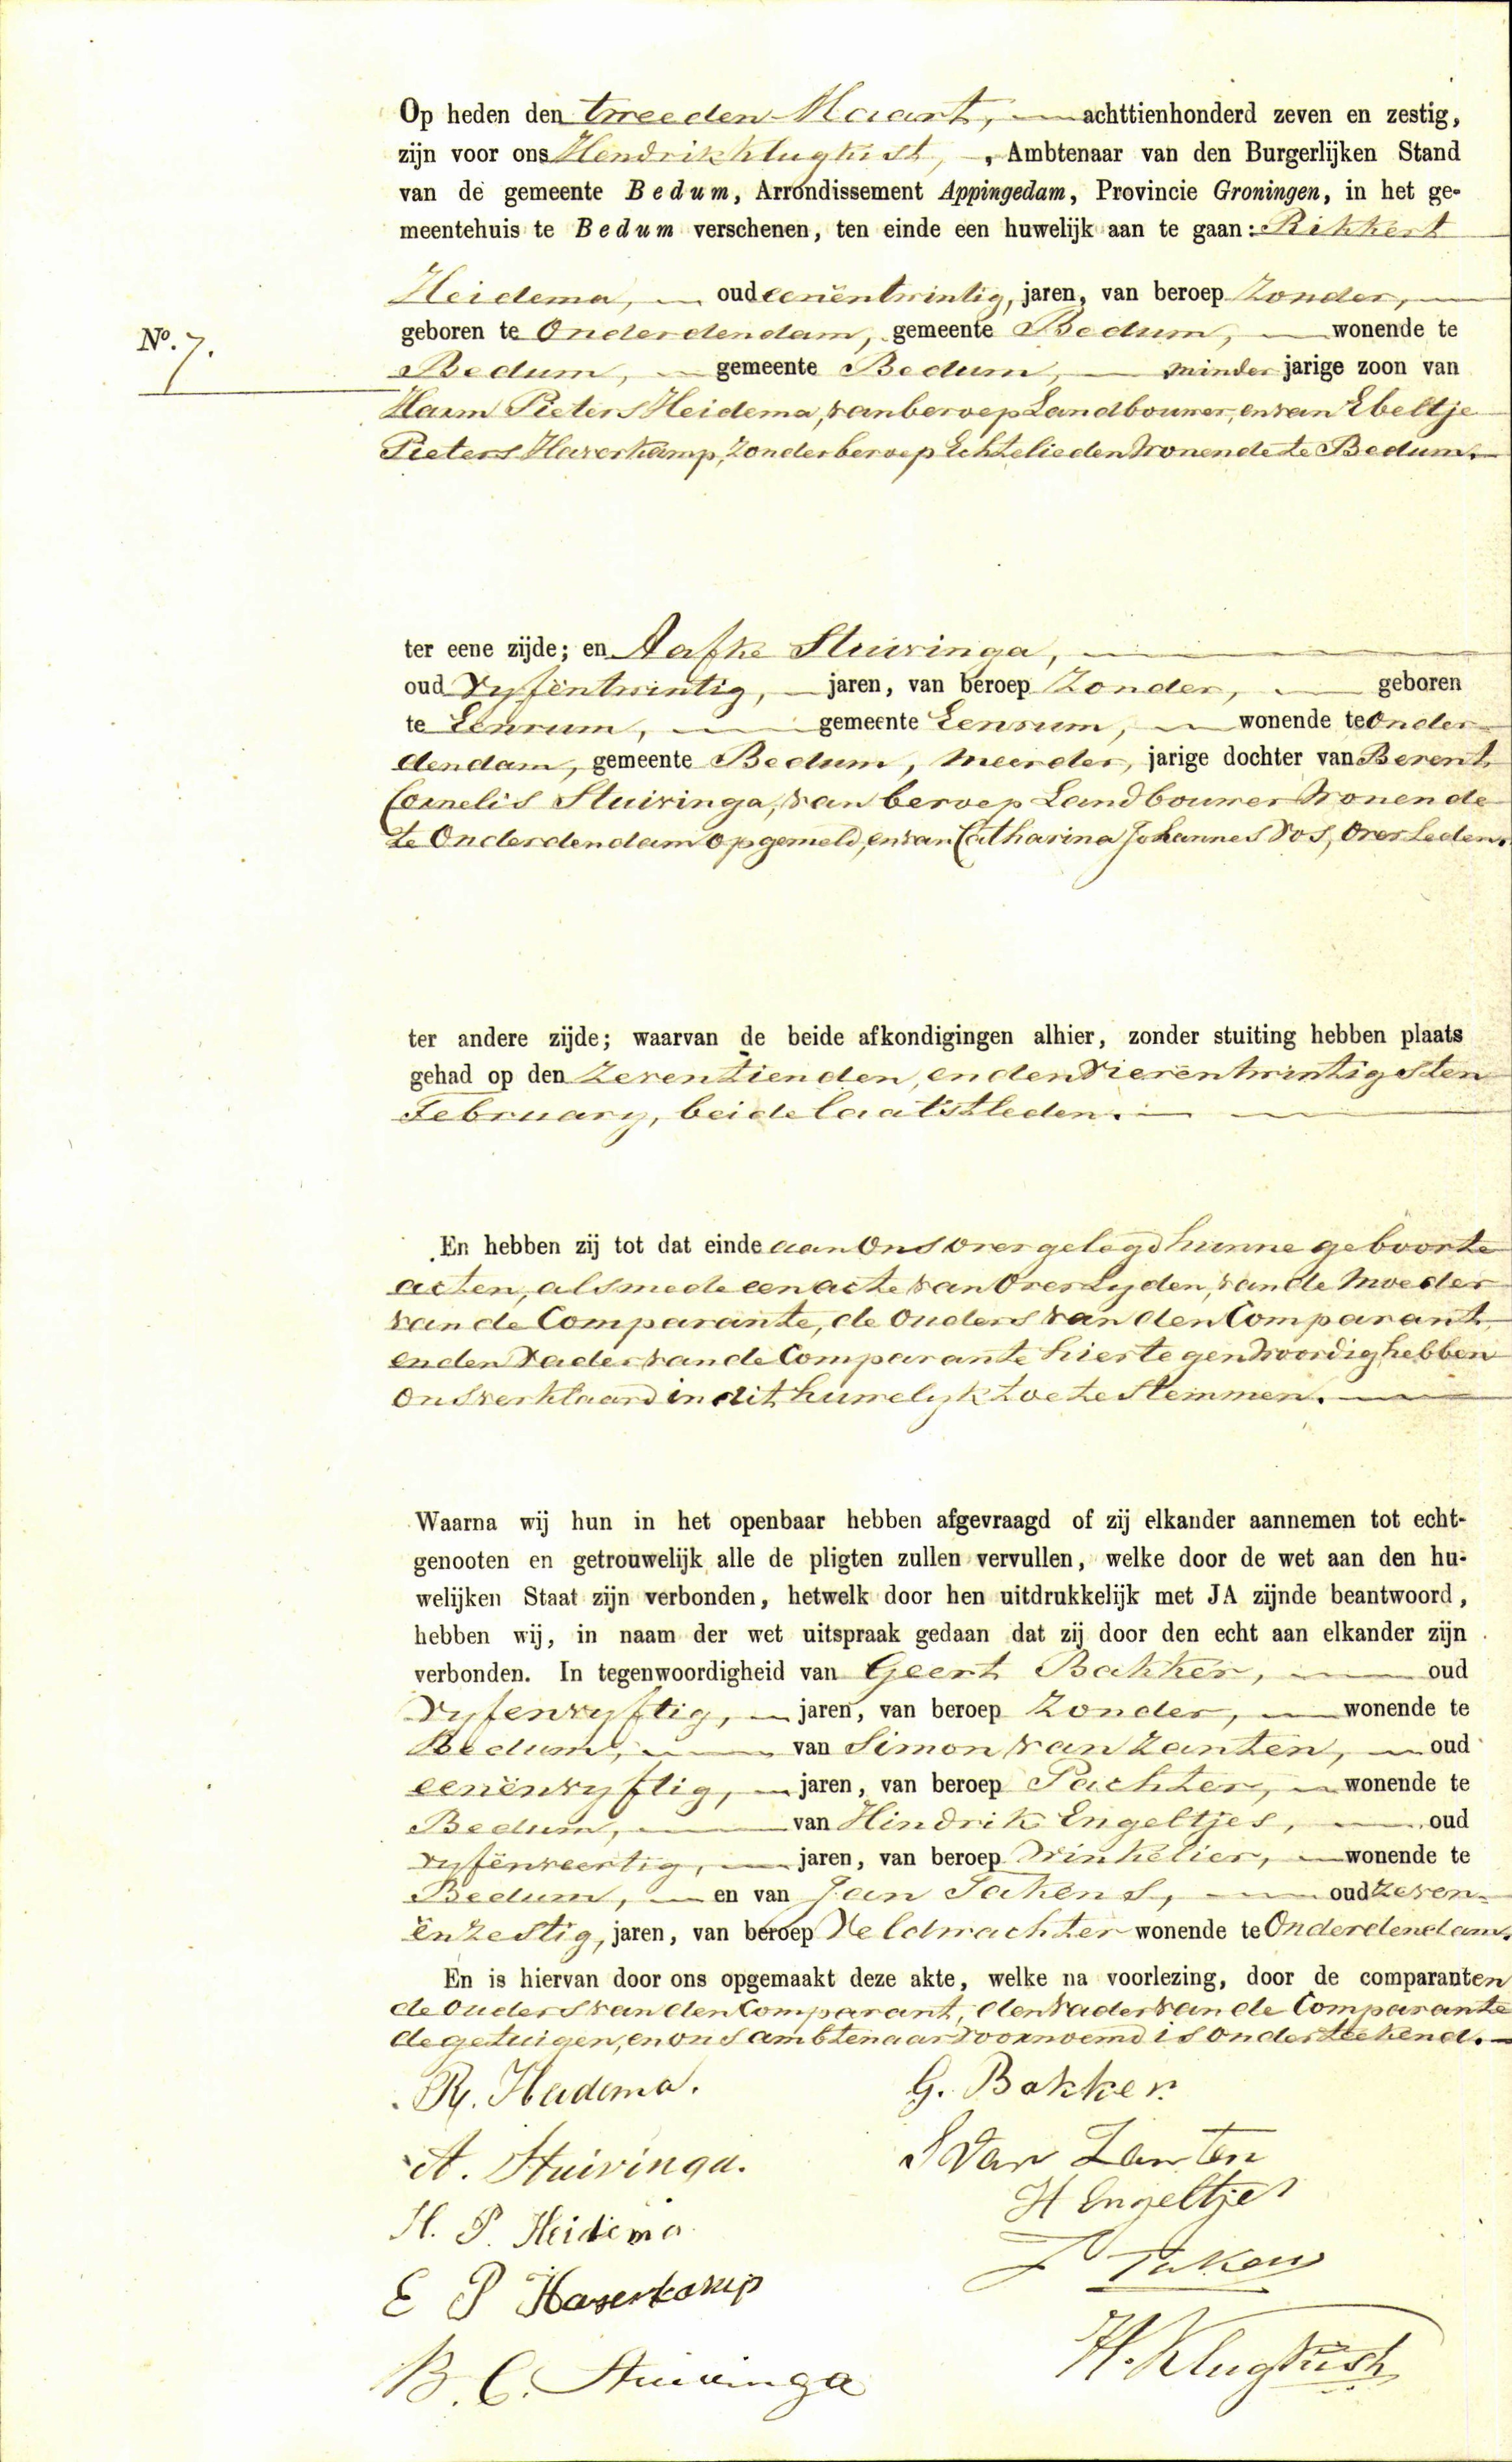 Op heden den tweeden Maart, achttienhonderd zeven en zestig,
zijn voor ons Hendrik Klugkist, , Ambtenaar van den Burgerlijken Stand
van de gemeente Bedum, Arrondissement Appingedam, Provincie Groningen, in het ge-
meentehuis te Bedum verschenen, ten einde een huwelijk aan te gaan: Rikkert
Heidema, oud eenëntwintig, jaren, van beroep Zonder,
geboren te Onderdendam, gemeente Bedum, wonende te
No. 7.
Bedum, gemeente Bedum, minder jarige zoon van
Harm Pieters Heidema, van beroep Landbouwer, en van Ebeltje
Pieters Haverkamp, Zonder beroep Echtelieden Wonende te Bedum.
ter eene zijde; en Aafke Stuivinga,
oud Vyfëntwintig, jaren, van beroep Zonder, geboren
te Eenrum, gemeente Eenrum, wonende te Onder
dendam, gemeente Bedum, meerder, jarige dochter van Berent
Cornelis Stuivinga, van beroep Landbouwer Wonende
te Onderdendam opgemeld, en van Catharina Johannes Vos, Overleden.
ter andere zijde; waarvan de beide afkondigingen alhier, zonder stuiting hebben plaats
gehad op den Zeventienden, en den Vierentwintigsten
February, beide laatstleden.
En hebben zij tot dat einde aan Ons overgelegd hunne geboorte
acten, alsmede een acte van Overlyden, van de Moeder
van de Comparante, de Ouders van den Comparant
en den Vader van de Comparante hier tegenwoordig hebben
Ons verklaard in dit huwelyk toe te stemmen.
Waarna wij hun in het openbaar hebben afgevraagd of zij elkander aannemen tot echt-
genooten en getrouwelijk alle de pligten zullen vervullen, welke door de wet aan den hu-
welijken Staat zijn verbonden, hetwelk door hen uitdrukkelijk met JA zijnde beantwoord,
hebben wij, in naam der wet uitspraak gedaan dat zij door den echt aan elkander zijn
verbonden. In tegenwoordigheid van Geert Bakker, oud
Vyfenvyftig, jaren, van beroep Zonder, wonende te
Bedum, van Simon van Zanten, oud
eenënvyftig, jaren, van beroep Pachter, wonende te
Bedum, van Hindrik Engeltjes, oud
vyfënveertig, jaren, van beroep Winkelier, wonende te
Bedum, en van Jan Takens, oud Zeven-
ënzestig, jaren, van beroep Veldwachter wonende te Onderdendam.
En is hiervan door ons opgemaakt deze akte, welke na voorlezing, door de comparanten
de Ouders van den Comparant, den Vader van de Comparante
de getuigen, en ons ambtenaar voornoemd is onderteekend.
R. Heidema. G. Bakker
A. Stuivinga. S van Zanten
H Engeltjes
H. P. Heidema
J Takens
E P Haverkamp
H. Klugkist
B. C. Stuivinga